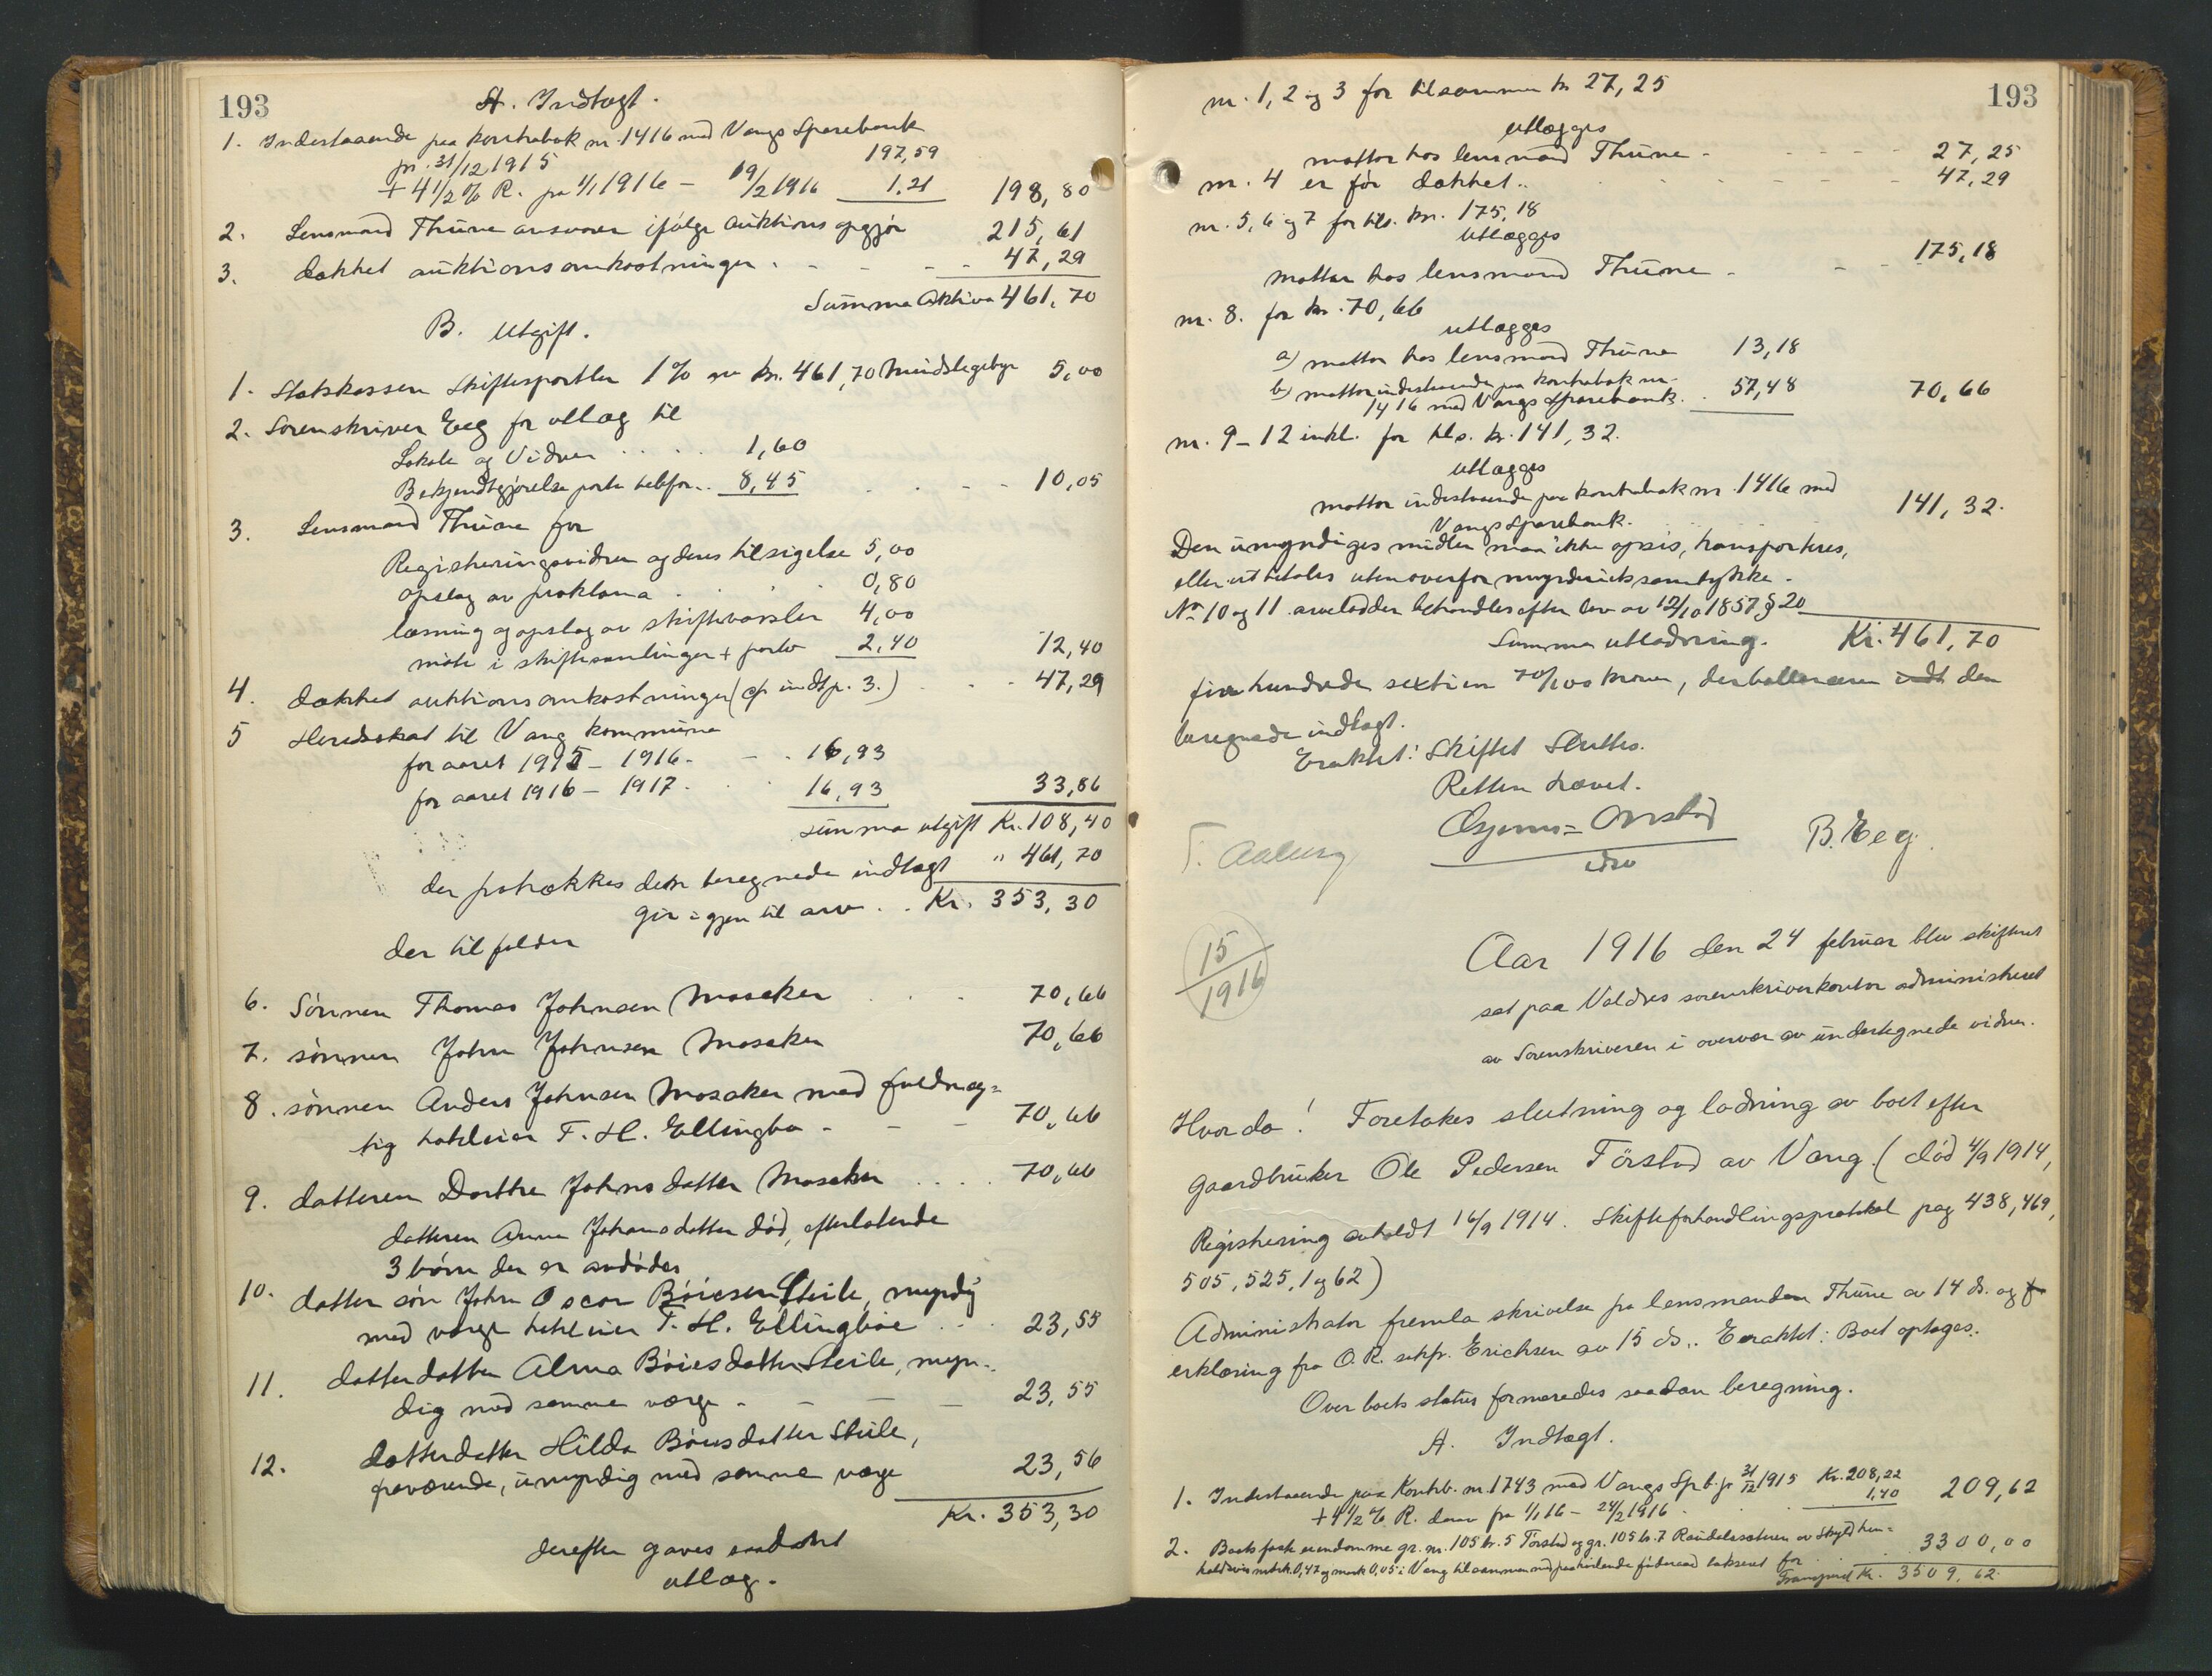 193
A. Indtægt.
1. Indestaaende paa kontrabok nr. 1416 med Vangs Sparebank
pr. 31/12 1915 197,59
+ 4 1/2 % R. fra 1/1 1916 - 19/2 1916 1,21 198,80
2. Lensmand Thune ansvarer ifølge auktionsopgjør 215,61
3. dækket auktionsomkostninger . - - - - 47,29
Summa Aktiva 461,70
B. Utgift.
1. Statskassen Skiftesportler 1% av kr. 461,70 Mindstegebyr 5,00
2. Sorenskriver Eeg for utlæg til
Lokale og Vidner . . . . . 1,60
Bekjendtgjørelse porto telefon.. 8,45 . . - - 10,05
3. Lensmand Thune for
Registreringsvidner og deres tilsigelse 5,00
opslag av proklama . . . 0,80
læsning og opslag av skiftevarsler 4,00
møte i skiftesamlinger + porto 2,40 12,40
4. dækket auktionsomkostninger (cfr indt p. 3.) . . . 47,29
5 Herredsskat til Vang kommune
for aaret 1915 - 1916. - . 16,93
for aaret 1916 - 1917. . . 16,93 33,86
summa utgift Kr. 108,40
der fratrækkes den beregnede indtægt " 461,70
gir igjen til arv . . Kr. 353,30
der tilfalder
6. Sønnen Thomas Johnsen Mosaker . . . 70,66
7. sønnen John Johnsen Mosaker 70,66
8. sønnen Anders Johnsen Mosaker med fuldmæg=
tig hoteleier T. H. Ellingbø - - - 70,66
9. datteren Dorthe Johnsdatter Mosaker . . . . 70,66
datteren Anna Johnsdatter død, efterlatende
3 børn der er avdødes
10. dattersøn John Oscar Bøiesen Steile, myndig
med værge hoteleier T. H. Ellingbøe . . . 23,55
11. datterdatter Alma Bøiesdatter Steile, myn-
dig med samme værge - - - - 23,55
12. datterdatter Hilda Bøiesdatter Steile,
fraværende, umyndig med samme værge 23,56
Kr. 353,30
derefter gaves saadant
utlæg.
193
nr. 1, 2 og 3 for tilsammen kr 27,25
utlægges
mottar hos lensmand Thune - - - - - - 27,25
nr. 4 er før dækket.. . . . - - - 47,29
nr. 5, 6 og 7 for tils. kr. 175,18
utlægges
mottar hos lensmand Thune - - - 175,18
nr. 8. for kr. 70,66
utlægges
a) mottar hos lensmand Thune 13,18
b) mottar indestaaende paa kontrabok nr.
1416 med Vangs Sparebank . . 57,48 70,66
nr. 9-12 inkl. for tils. kr. 141,32.
utlægges
mottar indestaaende paa kontrabok nr. 1416 med
Vangs Sparebank. 141,32.
Den umyndiges midler maa ikke opsies, transporteres,
eller utbetales uten overformynderiets samtykke.
No 10 og 11 arvelodder behandles efter lov av 12/10 1857 § 20
Summa utlodning. Kr. 461,70
fire hundrede sexti en 70/100 kroner, der ballancerer den
beregnede indtægt.
Eraktet: Skiftet Sluttes.
Retten hævet.
T. Aaberg B. Eeg.
15/1916
Aar 1916 den 24 februar blev skifteret
sat paa Valdres sorenskriverkontor administreret
av Sorenskriveren i overvær av undertegnede vidner.
Hvorda! Foretokes slutning og lodning av boet efter
gaardbruker Ole Pedersen Førstad av Vang. (død 4/9 1914,
Registrering avholdt 16/9 1914. Skifteforhandlingsprotokol pag 438, 469,
505, 525, 1 og 62)
Administrator fremla skrivelse fra lensmanden Thune av 14 ds. og
erklæring fra O.R. sakfr. Erichsen av 15 ds.. Eraktet: Boet optages.
Over boets status formeredes saadan beregning.
A. Indtægt.
1. Indestaaende paa Kontrb. nr. 1743 med Vangs Sp.b. pr 31/12 1915 Kr. 208,22
+ 4 1/2 % R. derav fra 1/1 16 - 24/2 1916 . 1,40 209,62
2. Boets faste eiendomme gr. nr. 105 br. 5 Førstad og gr. 105 br. 7 Raudalssæteren av Skyld hen=
holdsvis mark 0,47 og mark 0,05 i Vang tilsammen med paahvilende føderaad takseret for . . . 3300,00
Transport Kr. 3509,62